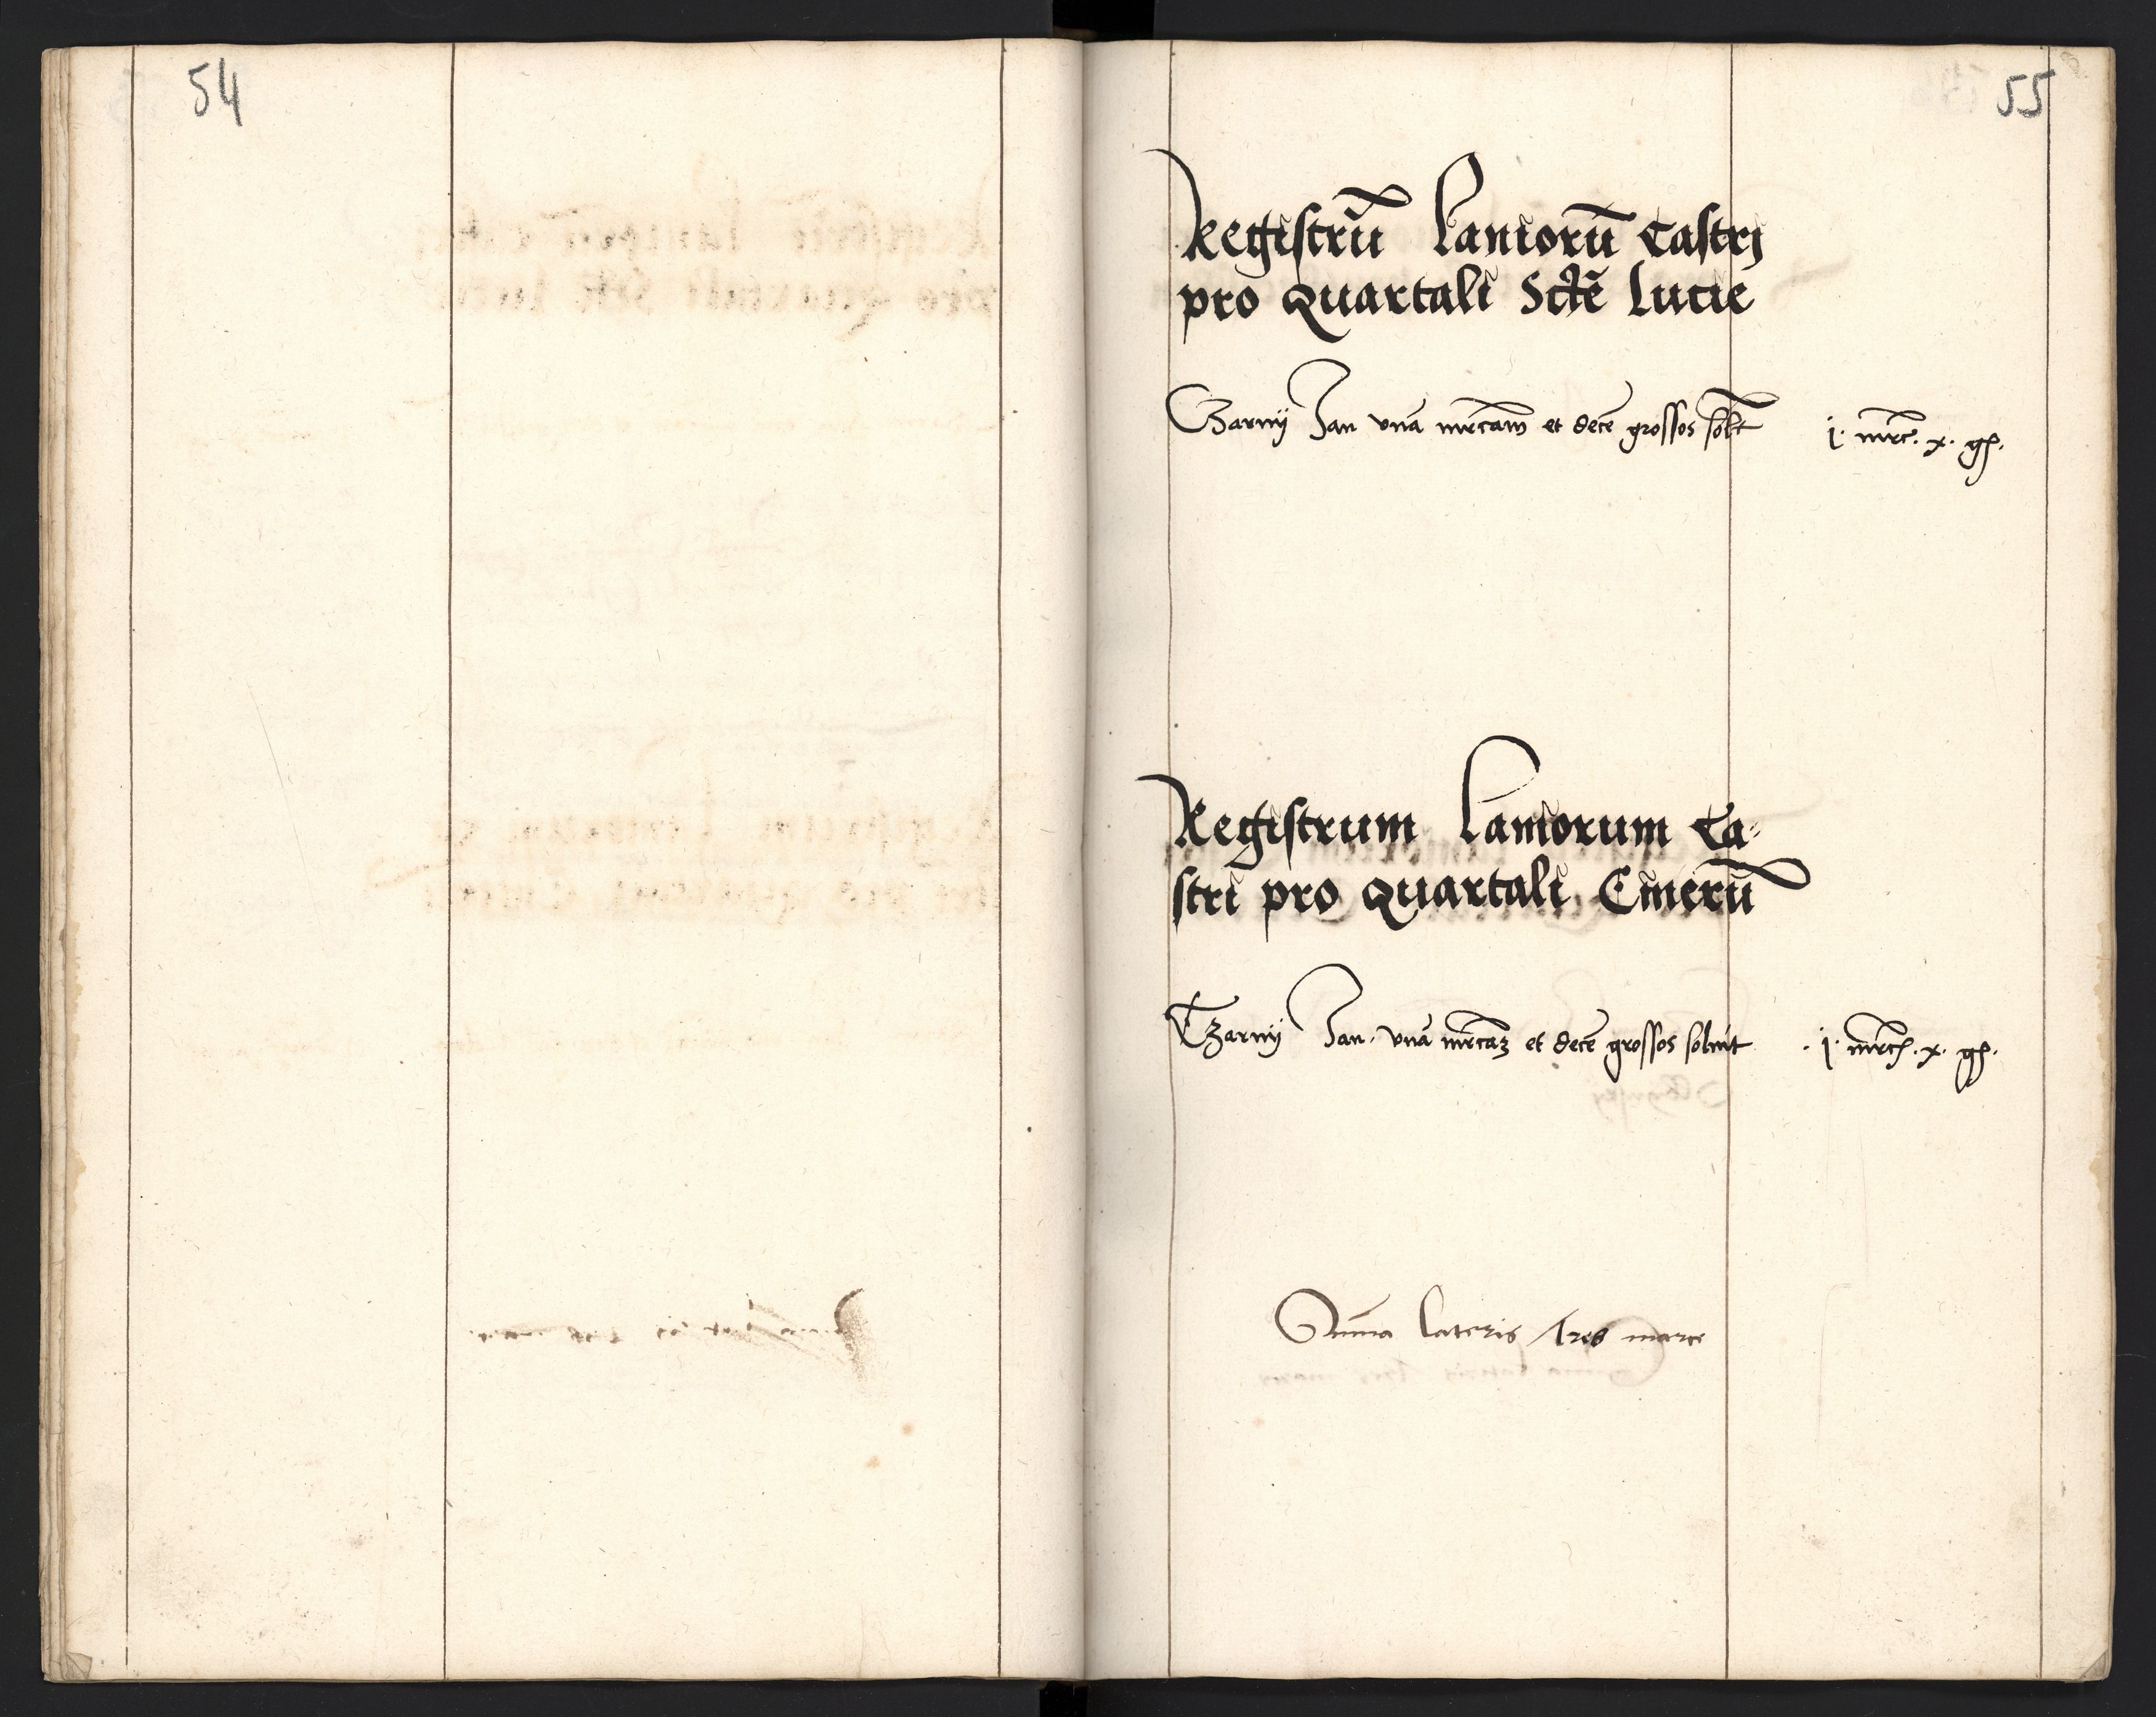 54
55
Registrū Laniorū Castrj
pro Quartali Sctē Lucie
Czarnÿ Jan vnā mrcam et decē grossos solt j. mrc. x. gs.
Registrum Laniorum Ca-
stri pro quartali Cinerū
Czarnÿ Jan. vnā mrcaz et decē grossos soluit . j. mrcs. x. gs.
Suma lateris tres marce